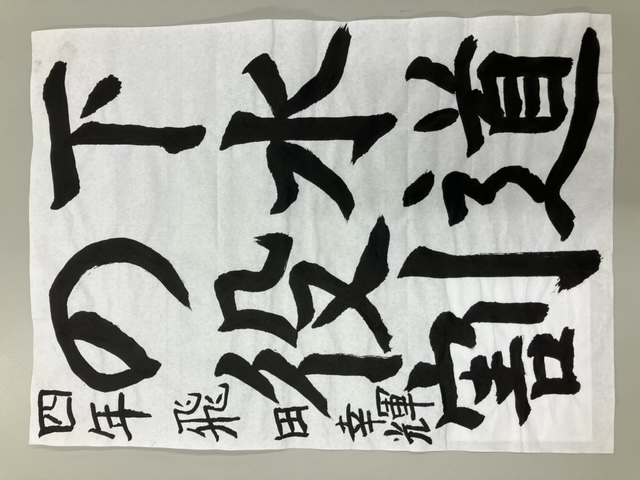 下水道
の役割
四年 飛田幸輝